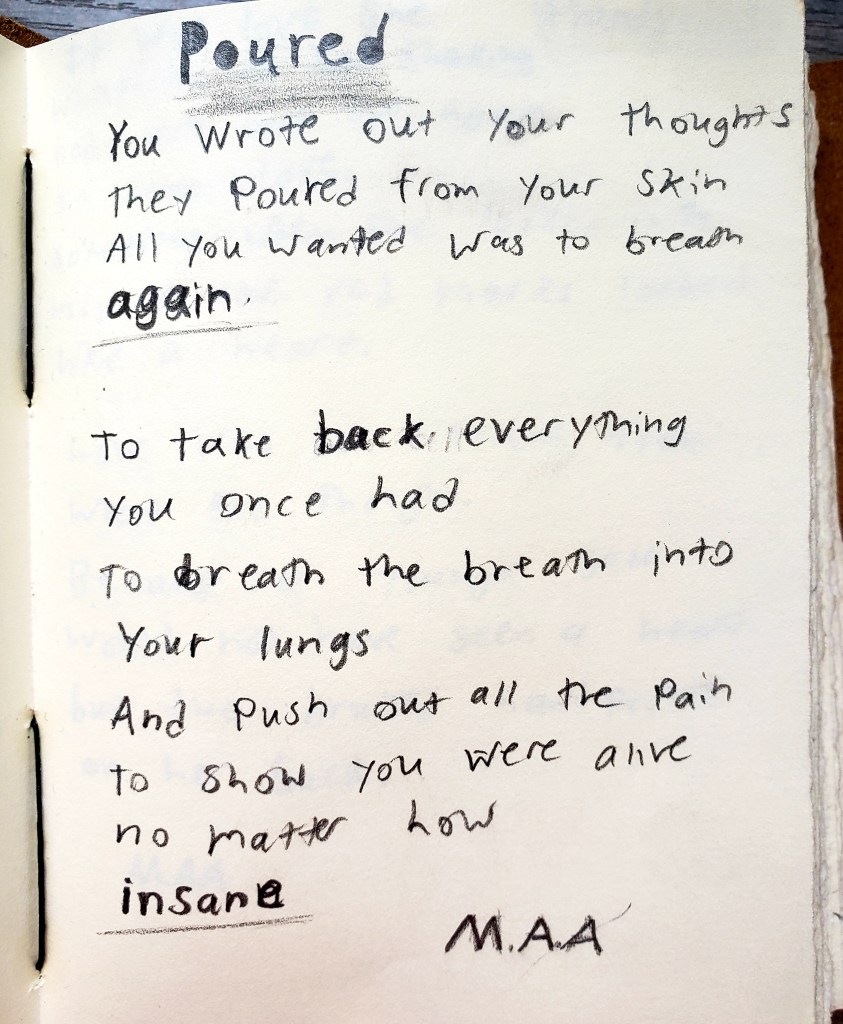 Poured
You wrote out your thoughts
They Poured from your skin
All you wanted was to breath
again.
To take back everything
You once had
To breath the breath into
Your lungs
And Push out all the Pain
to show you were alive
no matter how
insane
M.A.A